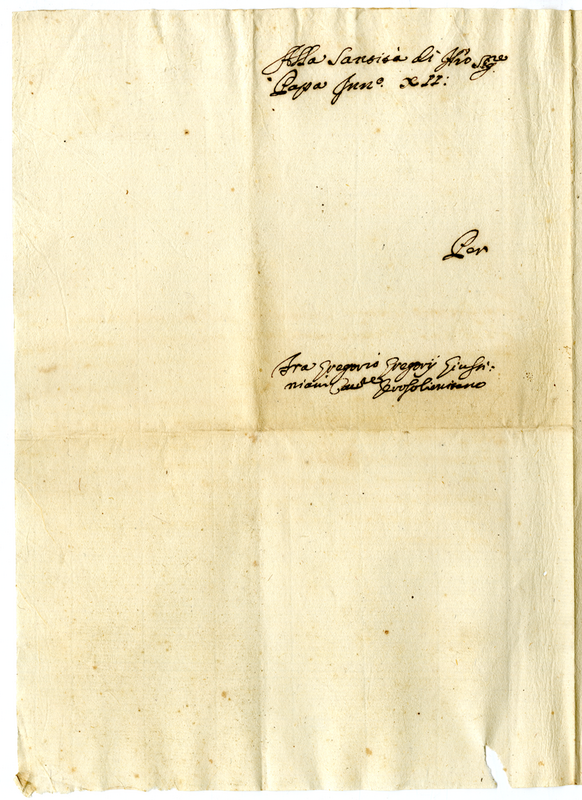 Alla Santità di Nro Sigre
Papa Inno. XII:
Per
Fra Gregorio Gregorij Giusti:
niani Caude Gerosolimitano